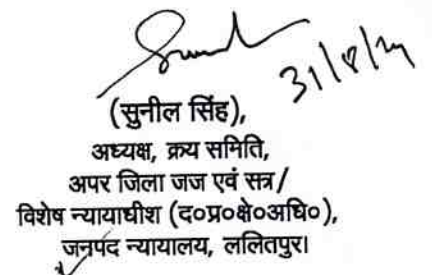 31/8/24
(सुनील सिंह),
अध्यक्ष, क्रय समिति,
अपर जिला जज एवं सत्र/
विशेष न्यायाधीश (द०प्र०क्षे०अधि०),
जनपद न्यायालय, ललितपुर।